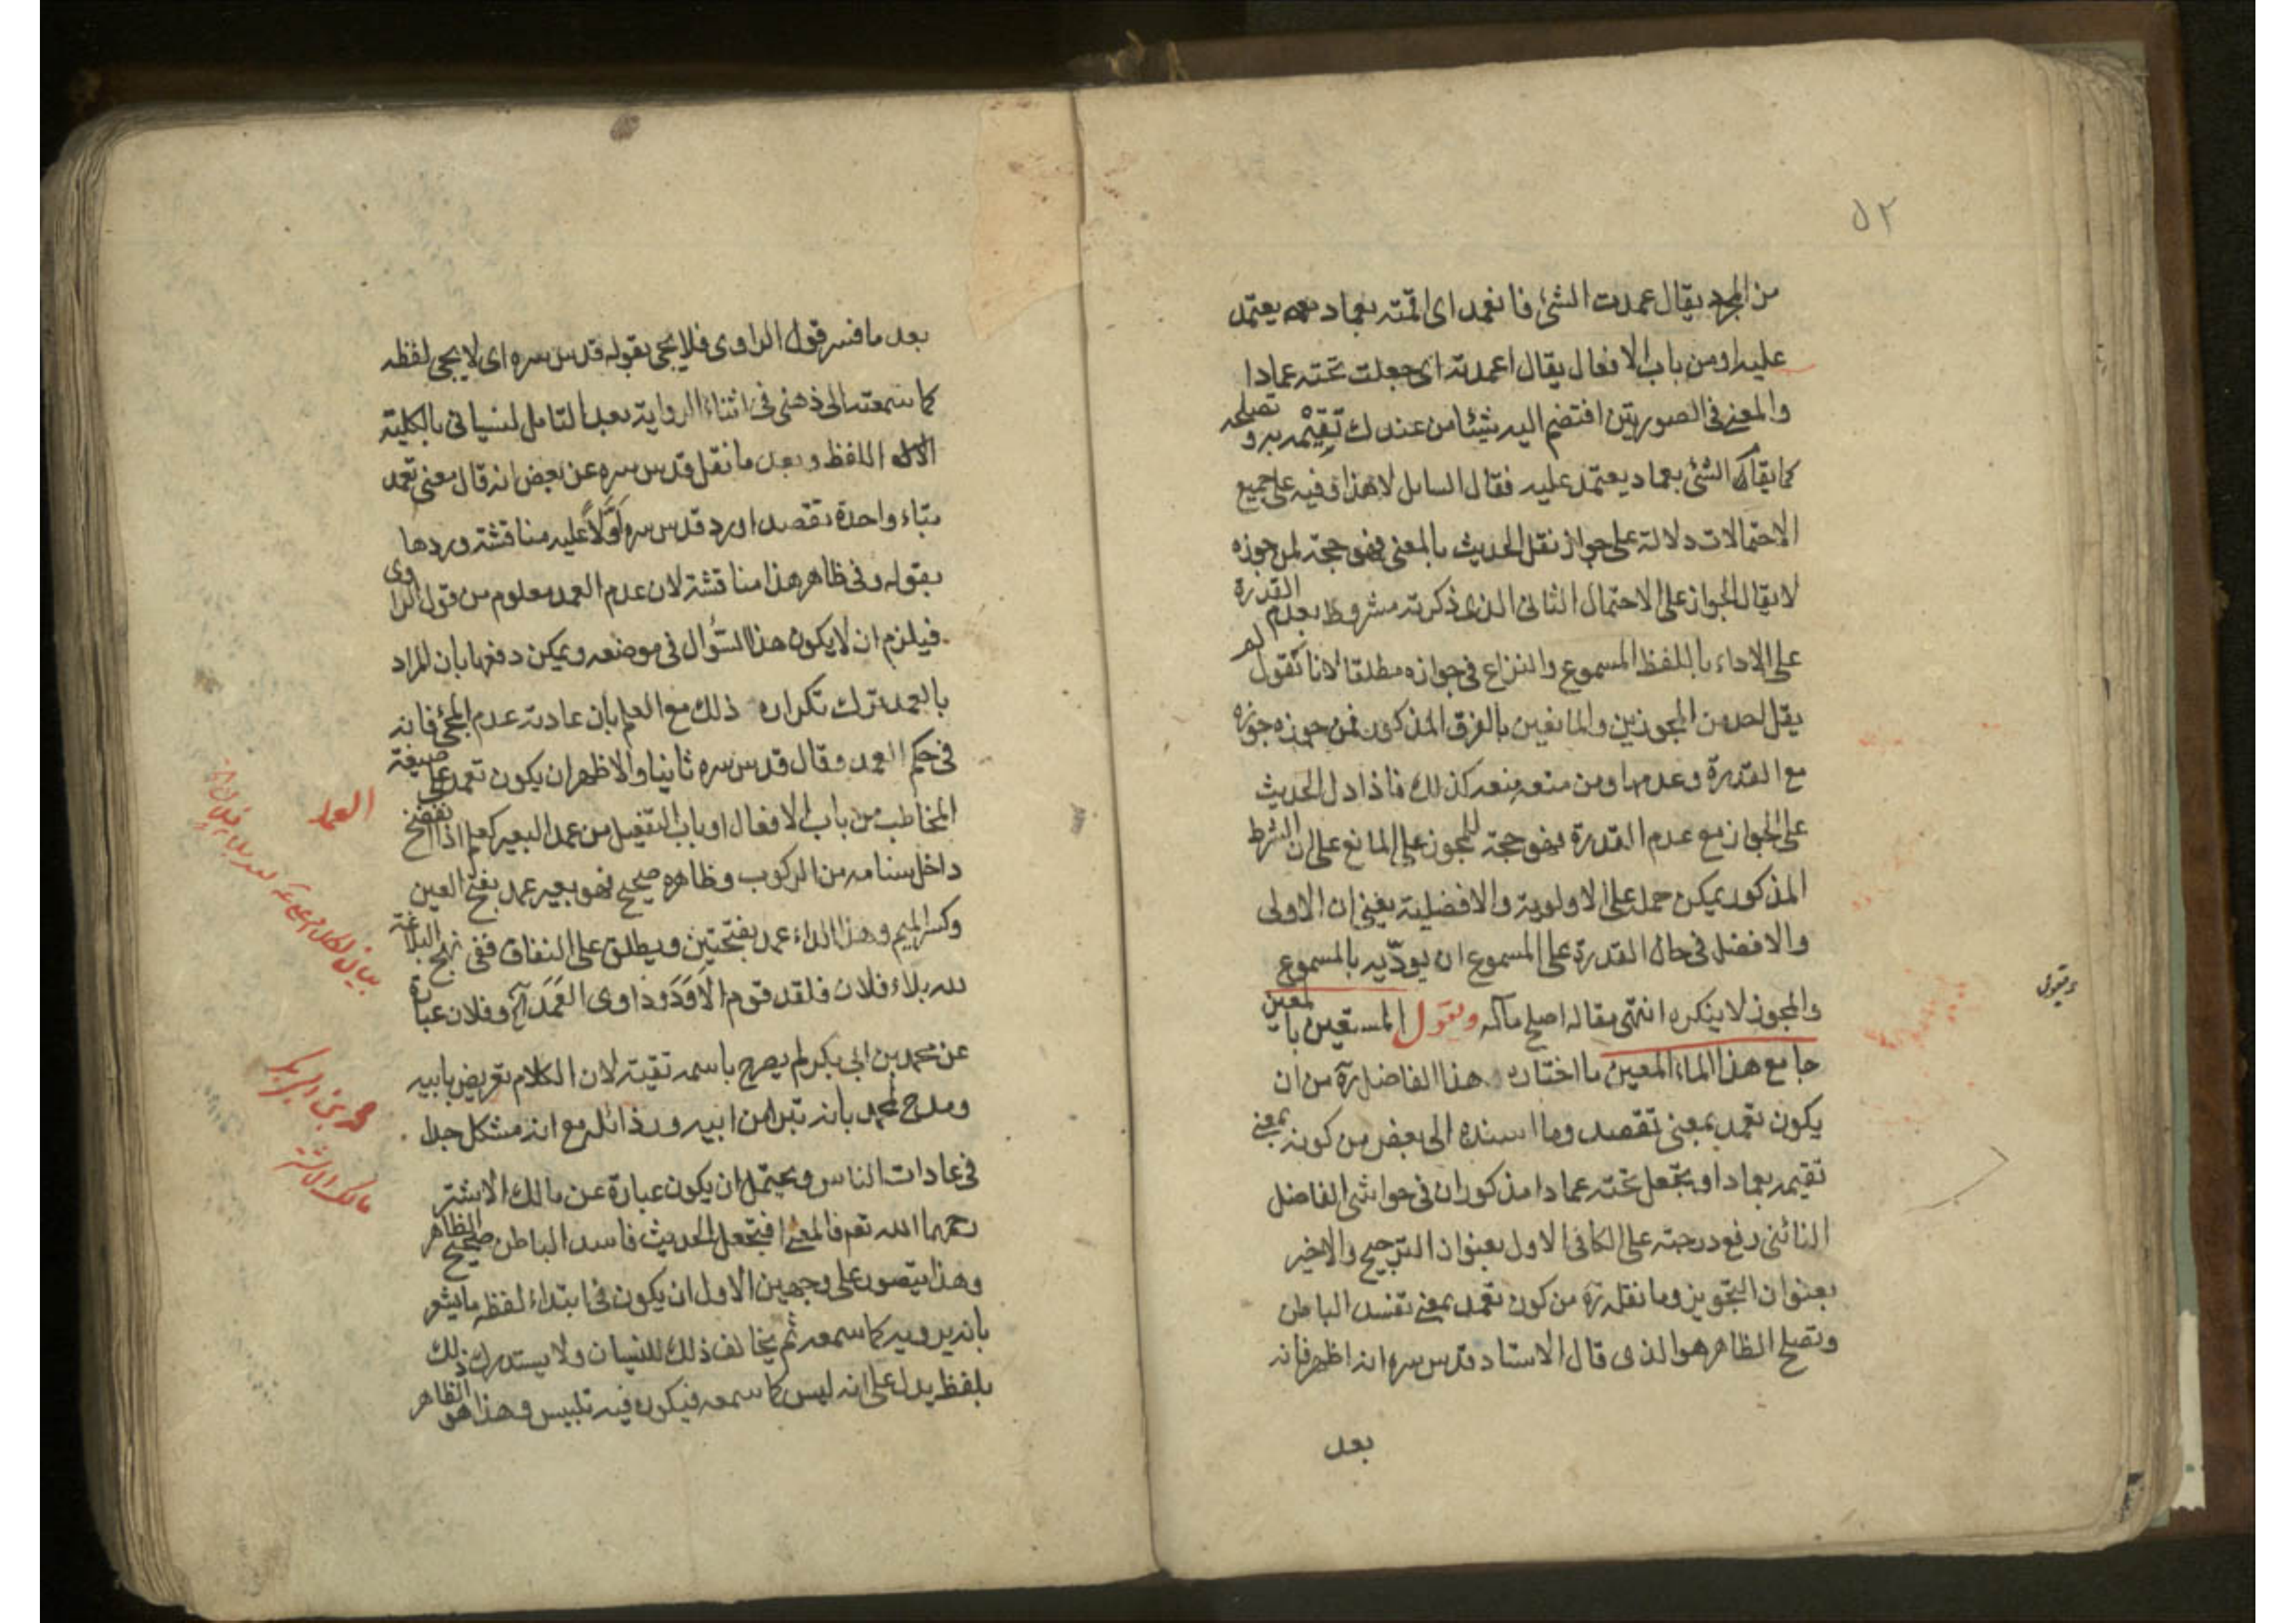 ٥٢
من المجرد يقال عمدت الشئ فانعمد اى اقمته بعماد يعتمد
عليه او من باب الافعال يقال اعمدته اى جعلت تحته عمادا
والمعنى فى الصورتين افتضم اليه شيئا من عندك تقيمه به و تصلحه
كما يقام الشئ بعماد يعتمد عليه فقال السايل لا هذا و فيه على جميع
الاحتمالات دلالة على جواز نقل الحديث بالمعنى فهو حجة لمن جوزه
لا يقال الجواز على الاحتمال الثانى الذى ذكرته مشروط بعدم القدرة
على الاداء باللفظ المسموع والنزاع فى جوازه مطلقا لانا نقول لم
يقل احد من المجوزين والمانعين بالفرق المذكور فمن جوزه جوزه
مع القدرة وعدمها ومن منعه منعه كذلك فاذا دل الحديث
على الجواز مع عدم القدرة فهو حجة للمجوز على المانع على ان الشرط
المذكور يمكن حمله على الاولوية والافضلية يعنى ان الاولى
والافضل فى حال القدرة على المسموع ان يودّيه بالمسموع
والمجوز لا ينكره انتهى مقاله اصلح مآله ويقول المستعين بالمعين
جامع هذا الماء المعين ما اختاره هذا الفاضل ره من ان
يكون تعمد بمعنى تقصد وما اسنده الى بعض من كونه بمعنى
تقيمه بعماد او يجعل تحته عمادا مذكوران فى حواشى الفاضل
النائنى رفع درجته على الكافى الاول بعنوان الترجيح والاخير
بعنوان التجويز وما نقله ره من كون تعمد بمعنى تفسد الباطن
وتصلح الظاهر هو الذى قال الاستاد قدس سره انه اظهر فانه
بعد
بعد ما فسر قول الراوى فلا يجئ بقوله قدس سره اى لا يجئ لفظه
كما سمعته الى ذهنى فى اثناء الرواية بعد التامل لنسيانى بالكلية
اللفظ وبعد ما نقل قدس سره عن بعض انه قال معنى تعمد
بتاء واحدة تقصد اورد قدس سره اوّلاً عليه مناقشة وردها
بقوله وفى ظاهر هذا مناقشة لان عدم العمد معلوم من قول الراوى
فيلزم ان لا يكون هذا السؤال فى موضعه ويمكن دفعها بان المراد
بالعمد ترك تكراره ذلك مع العلم بان عادته عدم المجئ فانه
فى حكم العمد وقال قدس سره ثانيا والاظهر ان يكون تعمد على صيغة
المخاطب من باب الافعال او باب التفعيل من عمد البعير كعلم اذا انفضخ
داخل سنامه من الركوب وظاهره صحيح فهو بعير عمد بفتح العين
وكسر الميم وهذا الداء عمد بفتحتين ويطلق على النفاق ففى نهج البلاغة
لله بلاء فلان فلقد قوم الاَوَدَ وداوى العَمَدَ آه وفلان عبارة
عن محمد بن ابى بكر لم يصرح باسمه تقية لان الكلام تعريض بابيه
ومدح لمحمد بانه تبرا من ابيه ورذائله مع انه مشكل جدا
فى عادات الناس ويحتمل ان يكون عبارة عن مالك الاشتر
رحمهما الله تعم فالمعنى افتجعل الحديث فاسد الباطن صحيح الظاهر
وهذا يتصور على وجهين الاول ان يكون فى ابتداء لفظه ما يشعر
بانه يرويه كما سمعه ثم يخالف ذلك للنسيان ولا يستدرك ذلك
بلفظ يدل على انه ليس كما سمعه فيكون فيه تلبيس وهذا هو الظاهر
العمد
محمد بن ابى بكر
مالك الاشتر